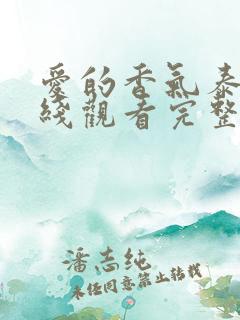 愛的香氣泰
綫觀看完整
潘志纯
未经同意禁止转载